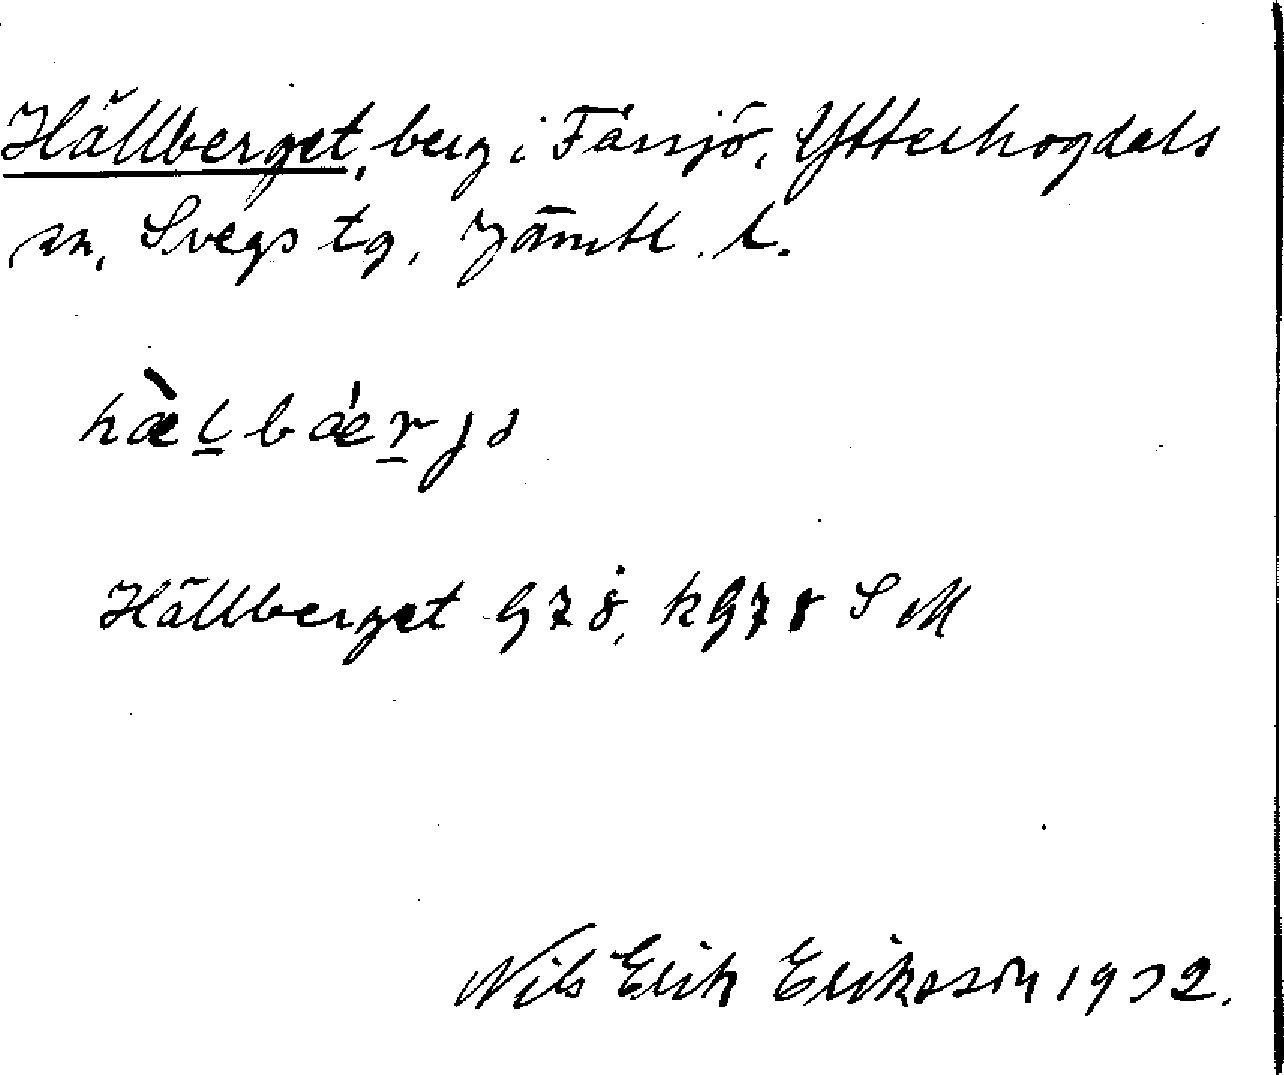 Hällberget, berg i Fåssjö, Ytterhogdals
sn, Svegs tg, Jämtl. l.
hæ̀l̠bæ̍r̠jə
Hällberget G78, kG78 SM
Nils Erik Eriksson 1932.